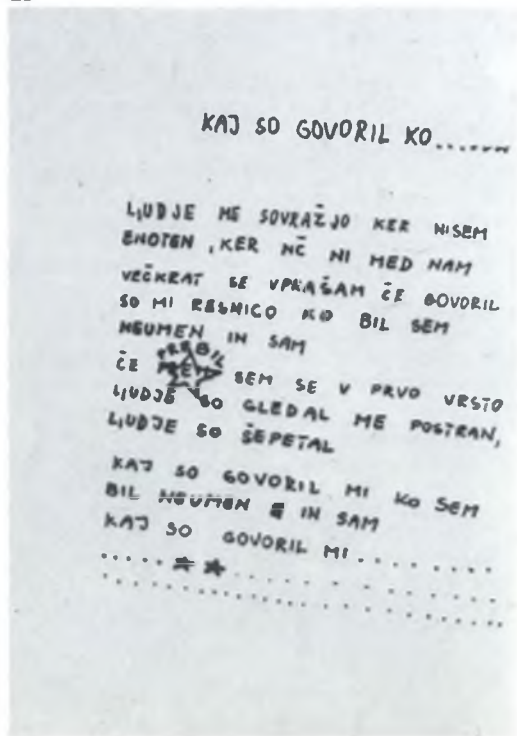 KAJ SO GOVORIL KO.......
LJUDJE ME SOVRAŽJO KER NISEM
ENOTEN, KER NČ NI MED NAM
VEČKRAT SE VPRAŠAM ČE GOVORIL
SO MI RESNICO KO BIL SEM
NEUMEN IN SAM
ČE PREBIL SEM SE V PRVO VRSTO
LJUDJE SO GLEDAL ME POSTRAN,
LJUDJE SO ŠEPETAL
KAJ SO GOVORIL MI KO SEM
BIL NEUMEN IN SAM
KAJ SO GOVORIL MI........